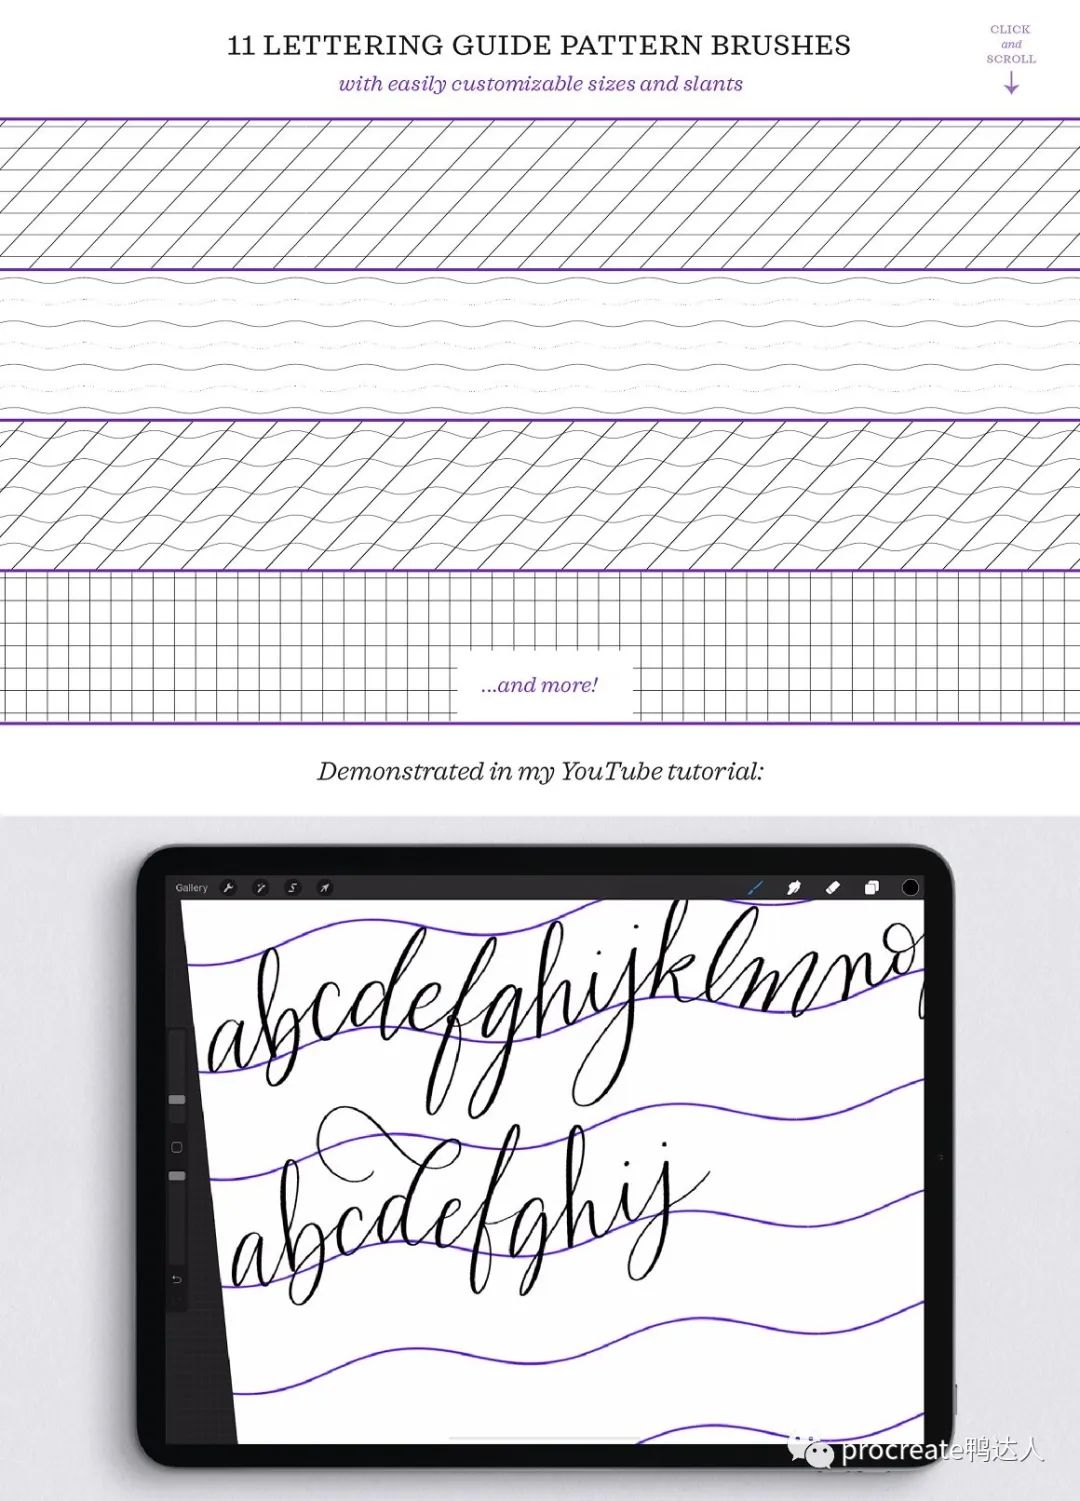 11 LETTERING GUIDE PATTERN BRUSHES
with easily customizable sizes and slants
CLICK
and
SCROLL
...and more!
Demonstrated in my YouTube tutorial:
Gallery
abcdefghijklmno
abcdefghij
procreate鸭达人